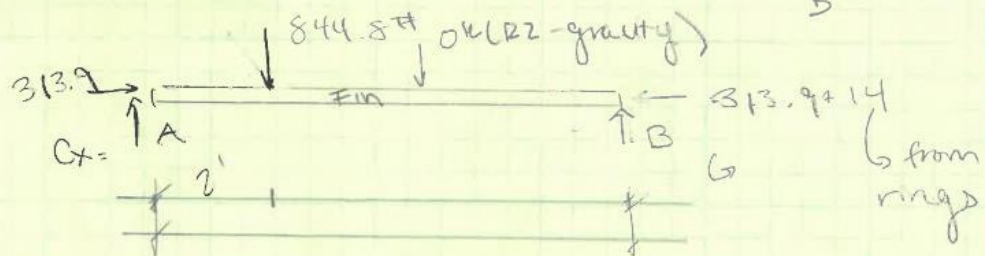 844.8# 0k (R2-gravity)
313.9 Fin 313.9+14
Cx= A B from
2' rings